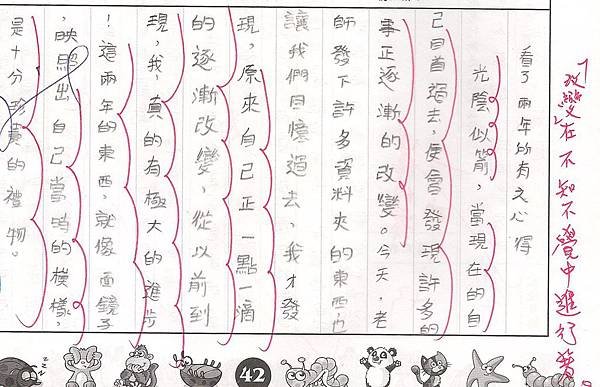 「改變」在不知不覺中進行

看了兩年所有之心得
光陰似箭，當現在的自
己回首過去，便會發現許多的
事正逐漸的改變。今天，老
師發下許多資料夾的東西，也
讓我們回憶過去，我才發
現，原來自己正一點一滴
的逐漸改變，從以前到
現，我，真的有極大的進步
！這兩年的東西，就像面鏡子
，映照出自己當時的模樣，
是十分珍貴的禮物。
42